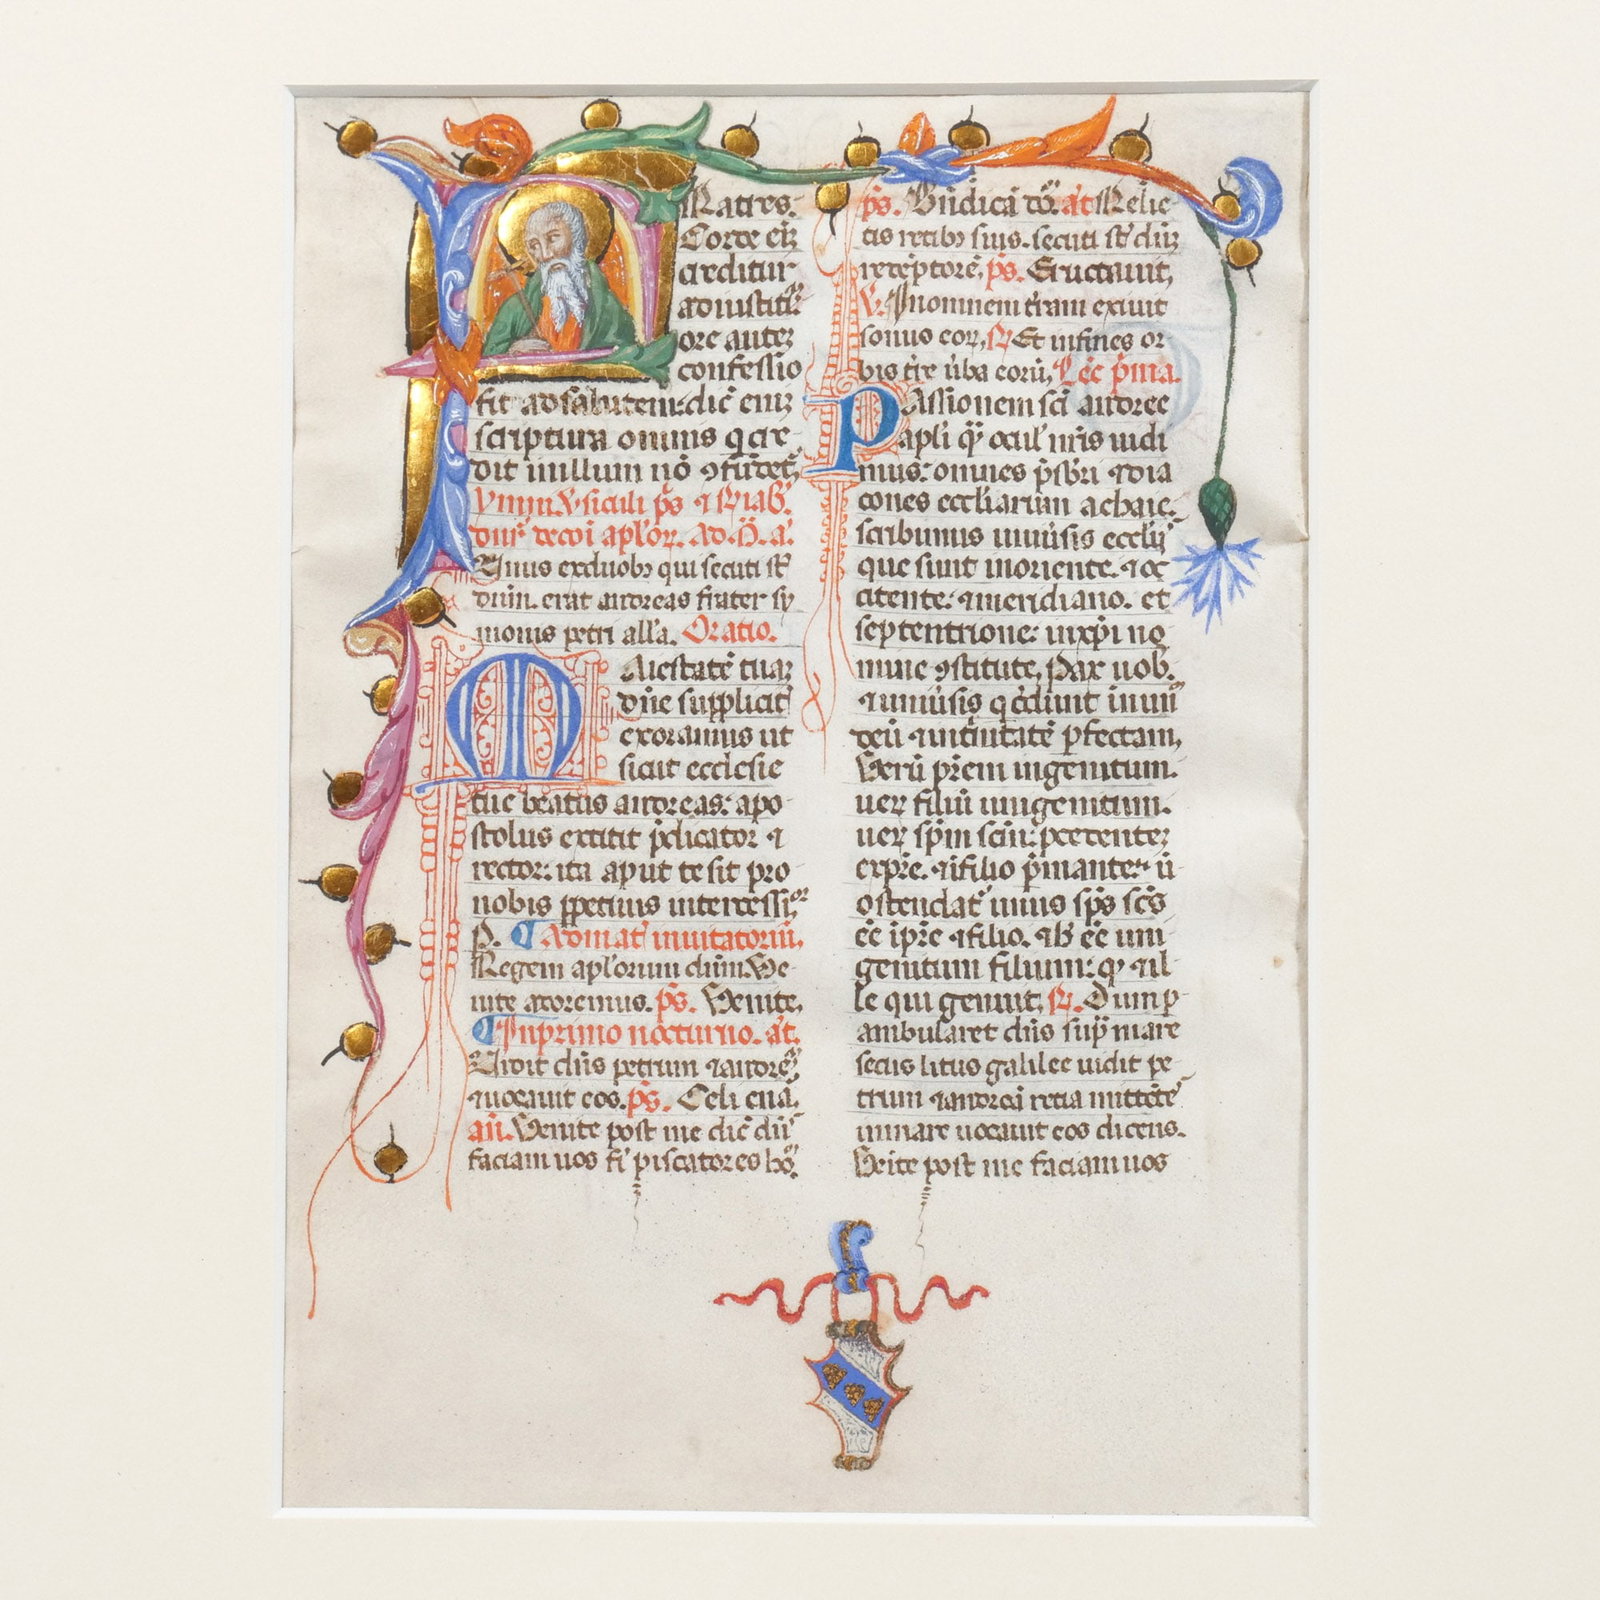 Ratres.
Corde eiɜ
creditur
ad iustitiā
ore auteɜ
confessio
fit ad salutem: dic̄ eniɜ
scriptura omnis q cre-
dit in illum nō ꝯfūdet̄
ymnu v̄siculi ps̄ ⁊
dūr de coī aplorꝫ. ad
Unus ex duobꝫ qui secuti st̄
dūm. erat andreas frater sy
monis petri all'a. Oratio.
Maiestatē tuaɜ
dn̄e suppliciť
exoramus ut
sicut ecclesie
tue beatus andreas: apo-
stolus extitit p̄dicator ⁊
rector: ita aput te sit pro
nobis ꝑpetuus intercessor
P. ¶ Ad mat̄ inuitatoriū.
Regem aplorum dūm. Ve-
nite adoremus. ps̄. Venite.
¶ In primo nocturno. añ.
Uidit dn̄s petrum ⁊ andreā
⁊ uocauit eos. ps̄. Celi ena.
añ. Venite post me dic̄ dn̄s
faciam uos fi piscatores hōɜ
ps̄. Bn̄dicā dō. añ Relic-
tis retibꝫ suis. secuti st̄ dūɜ
redēptorē. ps̄. Eructauit.
V. In omnem t̄ram exiuit
sonus eorꝫ. R. Et in fines or
bis t̄re ūba eorū. Lēc p̄ma.
Passionem sc̄i andree
apli quā oculis nr̄is uidi
mus: omnes p̄sbr̄i ⁊ dia
cones eccl'iarum achaie.
scribimus uniu̇sis eccl'ijs
que sunt in oriente. ⁊ oc
cidente: ⁊ meridiano. et
septentrione: in xp̄i no
mine ꝯstitute. Pax uob.
⁊ uniu̇sis q c̄dunt in unū
deū ⁊ in t̄nitatē ꝑfectam.
Verū pr̄em ingenitum.
uerꝫ filiū unigenitum.
uerꝫ sp̄m scm̄: ꝓcedenteɜ
ex pr̄e. ⁊ i filio ꝑmanteꝫ
ostendat̄ unus sp̄s sc̄s
ēē i pr̄e ⁊ filio. ⁊ ēē uni
genitum filium: ⁊ il-
le qui genuit. R. Dum ꝑ
ambularet dn̄s sup̄ mare
secus litus galilee uidit pe-
trum ⁊ andreā retia mittētes
in mare uocauit eos dicens.
Venite post me faciam uos